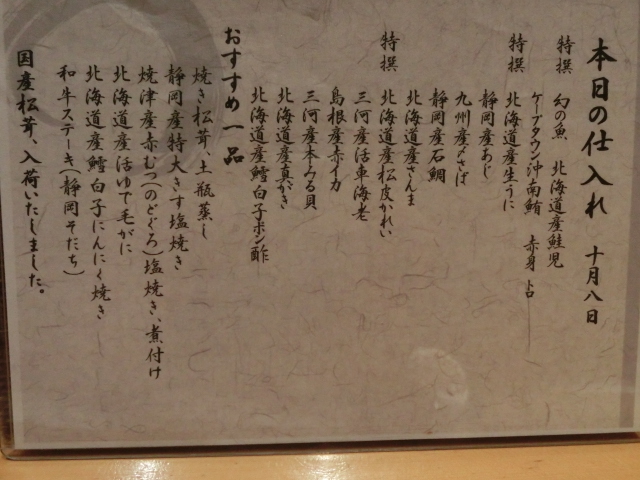 本日の仕入れ 十月八日
特撰 幻の魚 北海道産鮭児
ケープタウン沖南鮪 赤身 トロ
特撰 北海道産生うに
静岡産あじ
九州産〆さば
静岡産石鯛
北海道産さんま
特撰 北海道産松皮かれい
三河産活車海老
島根産赤イカ
三河産本みる貝
北海道産真がき
北海道産鱈白子ポン酢
おすすめ一品
焼き松茸、土瓶蒸し
静岡産特大きす塩焼き
焼津産赤むつ(のどぐろ)塩焼き、煮付け
北海道産活ゆで毛がに
北海道産鱈白子にんにく焼き
和牛ステーキ(静岡そだち)
国産松茸、入荷いたしました。